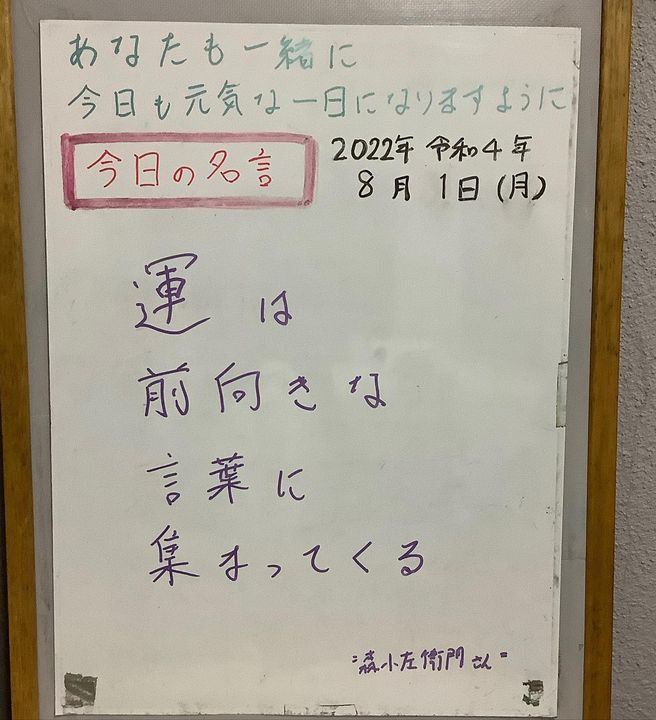 あなたも一緒に
今日も元気な一日になりますように
今日の名言
2022年 令和4年
8月 1日(月)
運は
前向きな
言葉に
集まってくる
"森小左衛門さん"